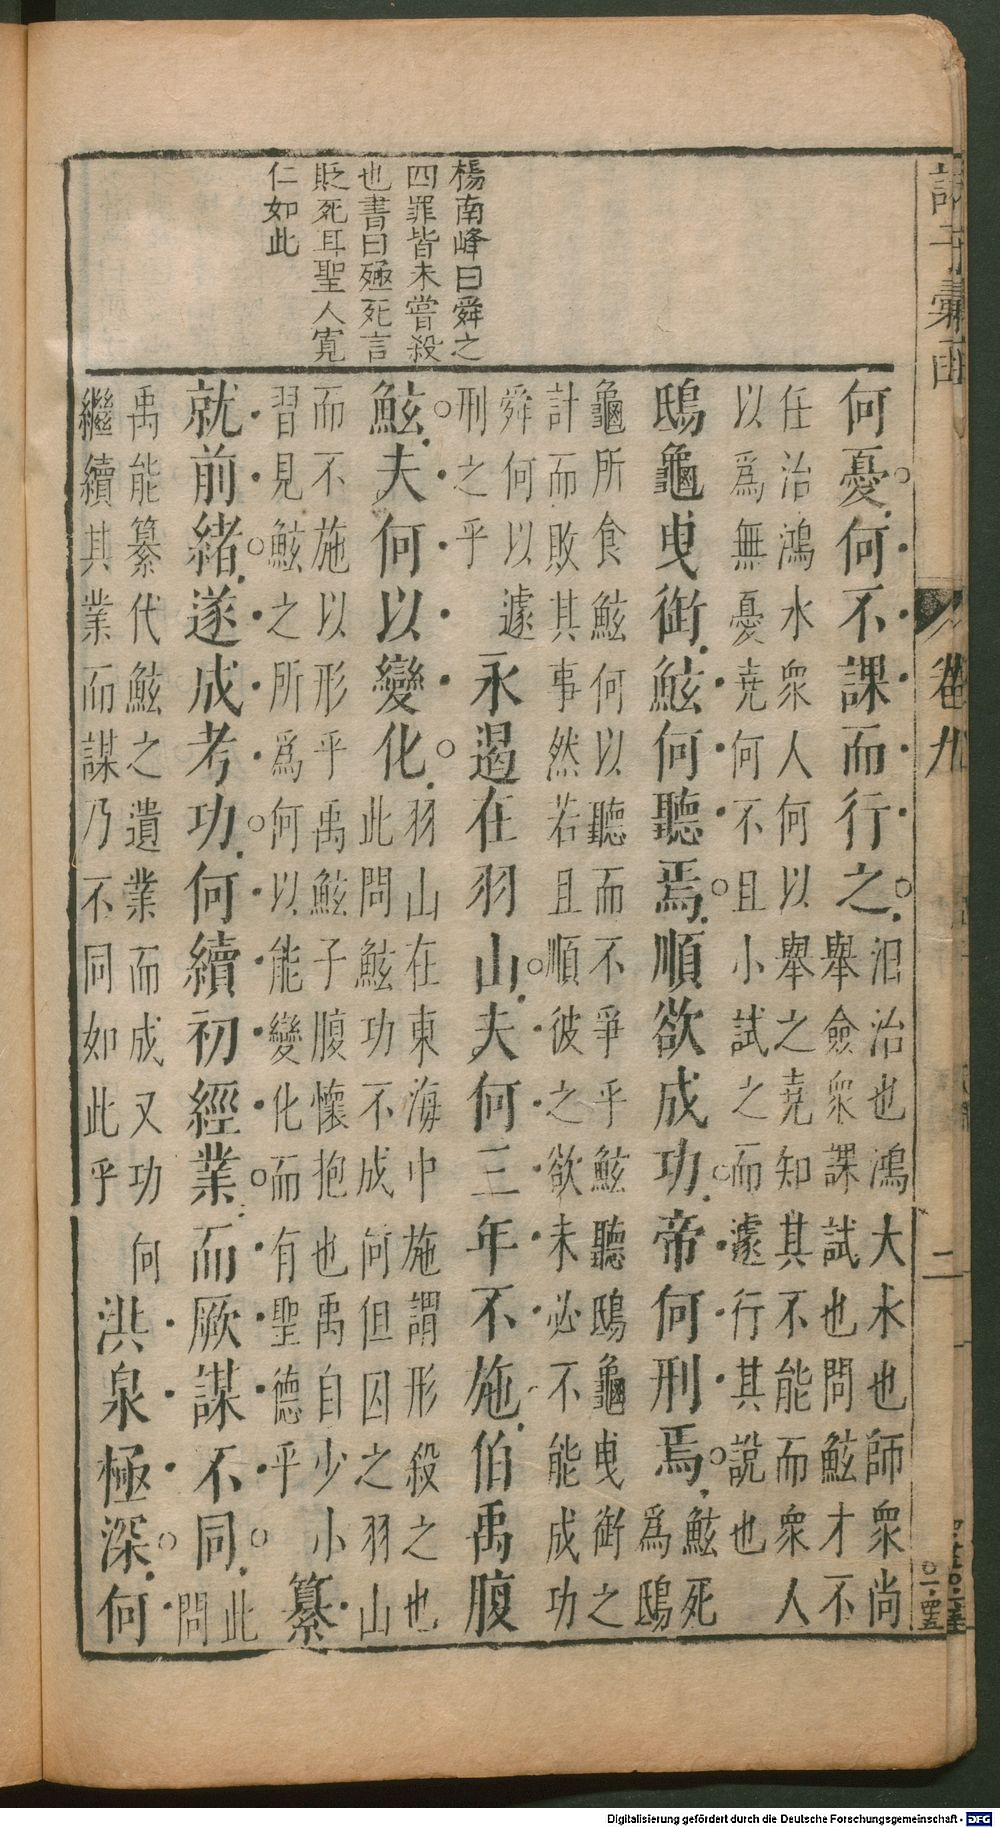 楊南峰曰舜之
四罪皆未嘗殺
也書曰殛死言
貶死耳聖人寛
仁如此
何憂何不課而行之
汩治也鴻大水也師衆尚
舉僉衆課試也問鮌才不
任治鴻水衆人何以舉之堯知其不能而衆人
以爲無憂堯何不且小試之而遽行其說也
鴟龜曳銜鮌何聽焉順欲成功帝何刑焉
鮌死
爲鴟
龜所食鮌何以聽而不爭乎鮌聽鴟龜曳銜之
計而敗其事然若且順彼之欲未必不能成功
舜何以遽
刑之乎
永遏在羽山夫何三年不施伯禹腹
鮌夫何以變化
羽山在東海中施謂形殺之也
此問鮌功不成何但囚之羽山
而不施以形乎禹鮌子腹懷抱也禹自少小
習見鮌之所爲何以能變化而有聖德乎
纂
就前緒遂成考功何續初經業而厥謀不同
此
問
禹能纂代鮌之遺業而成又功何
繼續其業而謀乃不同如此乎
洪泉極深何
諸子彙函
卷九
二
Digitalisierung gefördert durch die Deutsche Forschungsgemeinschaft - DFG